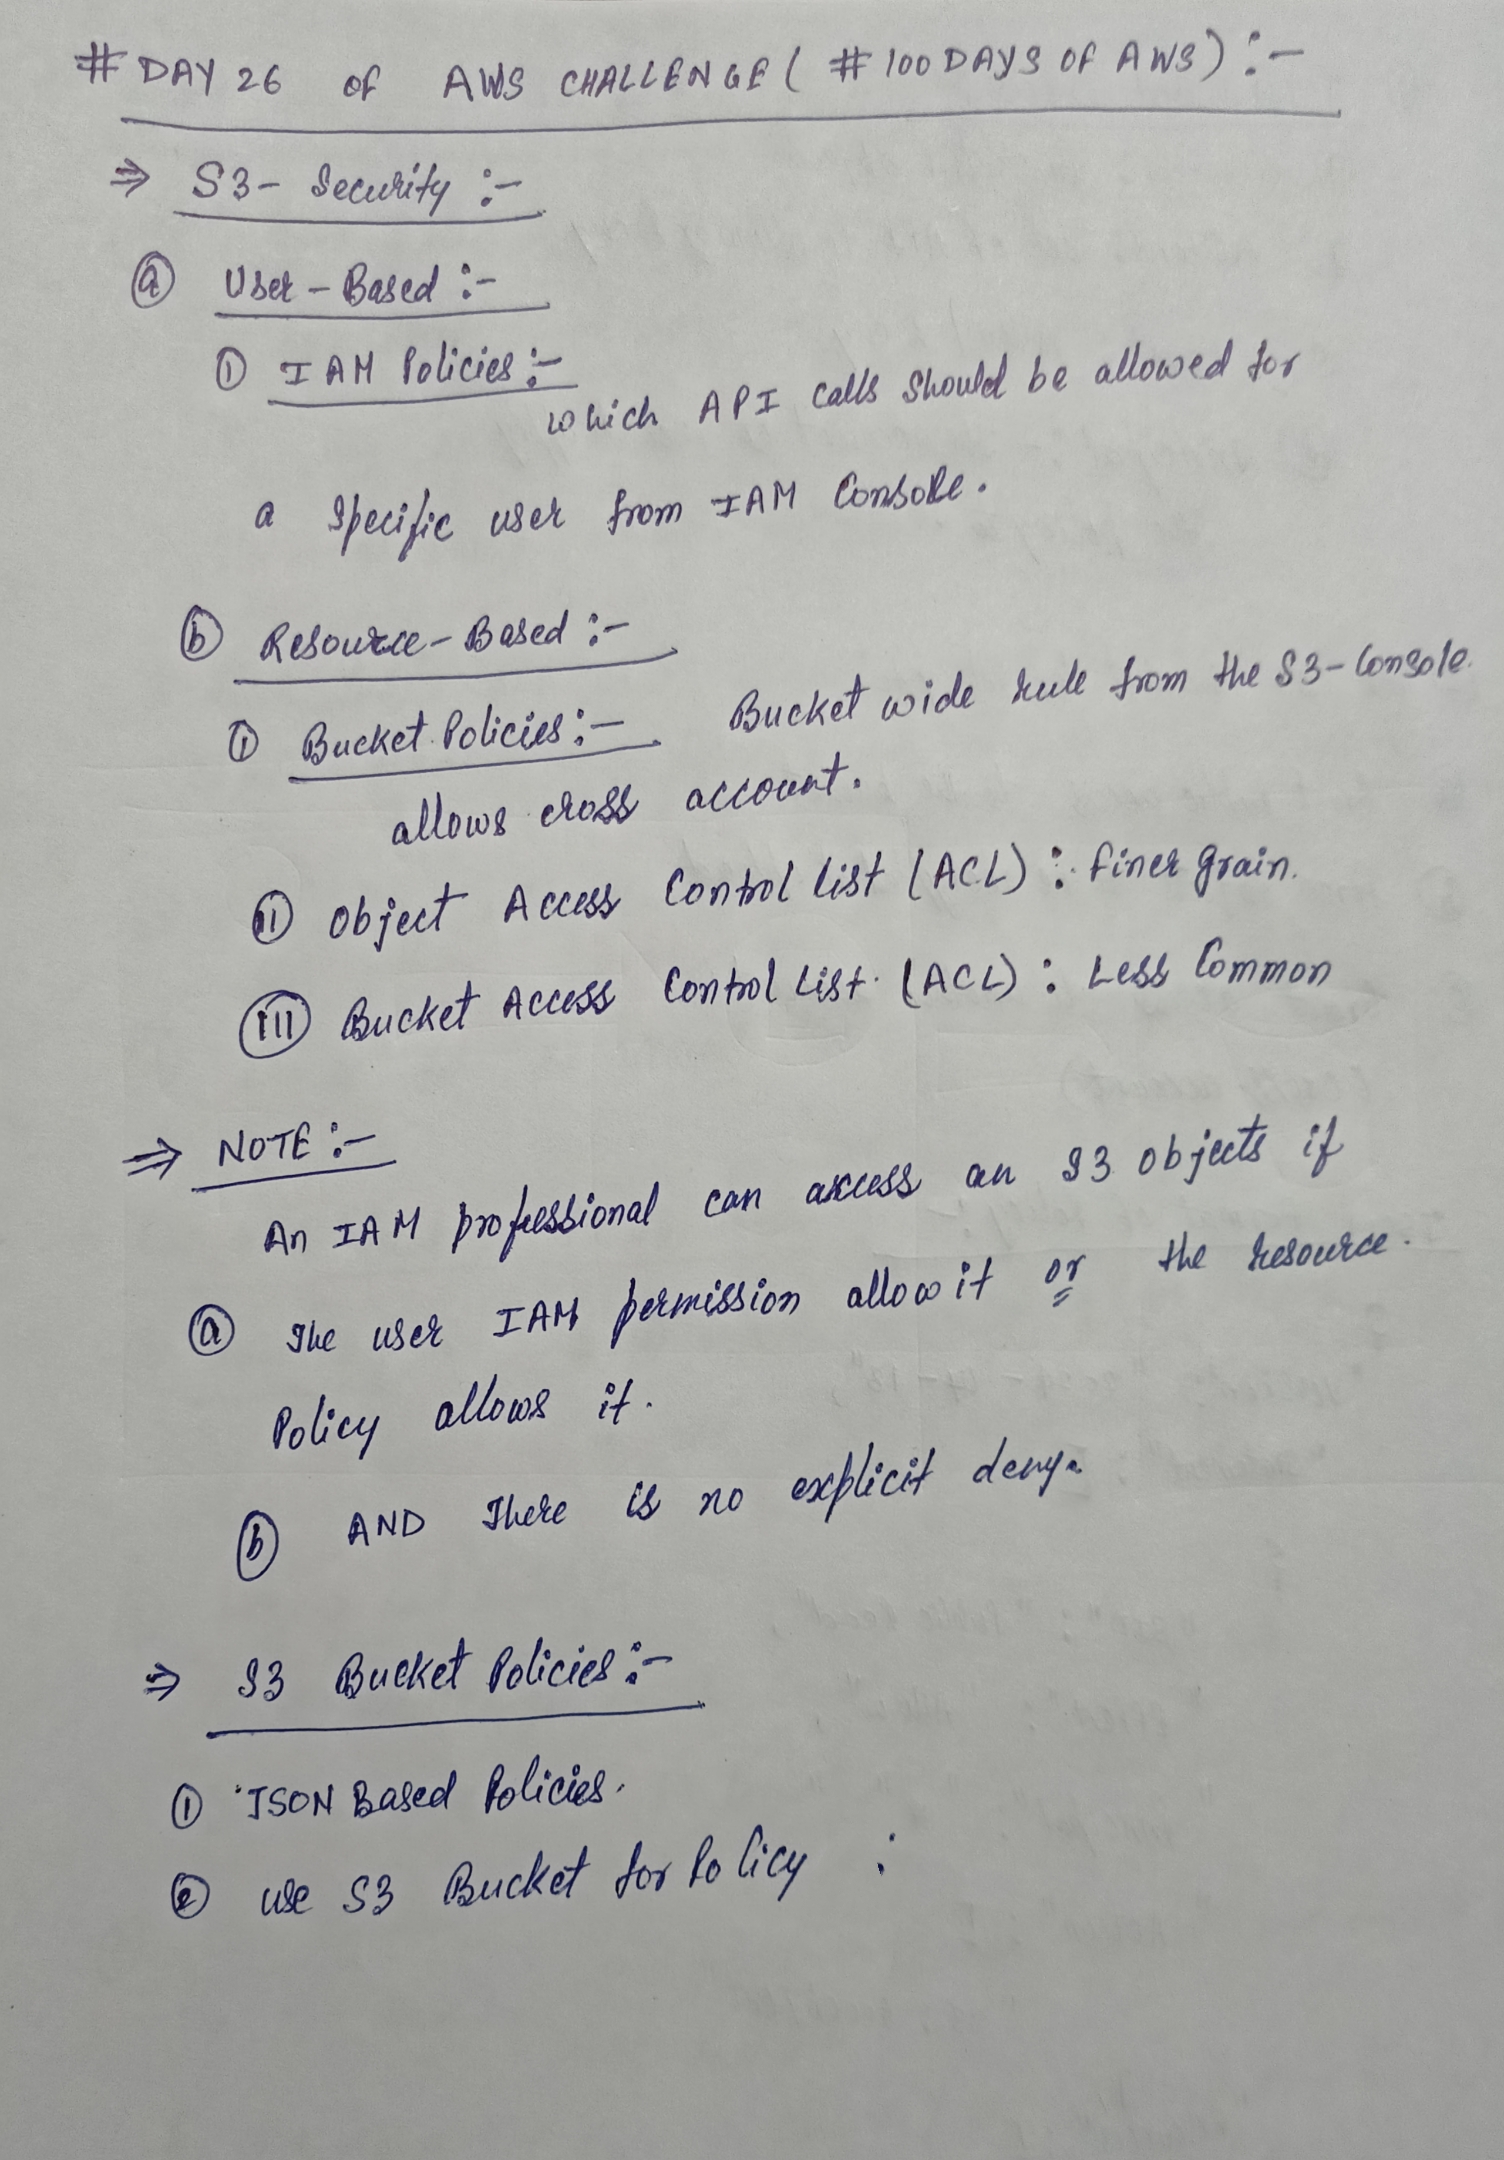 # DAY 26 of AWS CHALLENGE ( # 100 DAYS OF AWS ) :-
⇒ S3- Security :-
ⓐ User-Based :-
① IAM Policies :-
which API calls should be allowed for
a specific user from IAM Console.
ⓑ Resource-Based :-
① Bucket Policies :- Bucket wide rule from the S3-Console.
allows cross account.
ⅱ Object Access Control list (ACL) : finer grain.
ⅲ Bucket Access Control List. (ACL) : Less Common
⇒ NOTE :-
An IAM professional can access an S3 objects if
ⓐ The user IAM permission allow it or the resource.
Policy allows it.
ⓑ AND There is no explicit deny.
⇒ S3 Bucket Policies :-
① JSON Based Policies.
② use S3 Bucket for Policy :